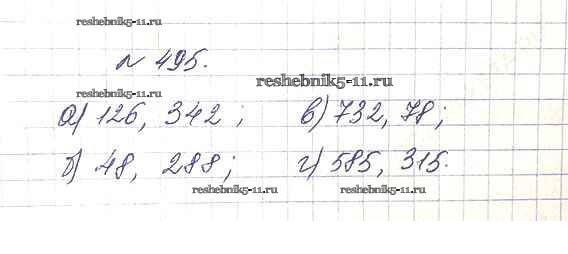 reshebnik5-11.ru
№ 495.
reshebnik5-11.ru
reshebnik5-11.ru
а) 126, 342; в) 732, 78;
б) 48, 288; г) 585, 315.
reshebnik5-11.ru reshebnik5-11.ru